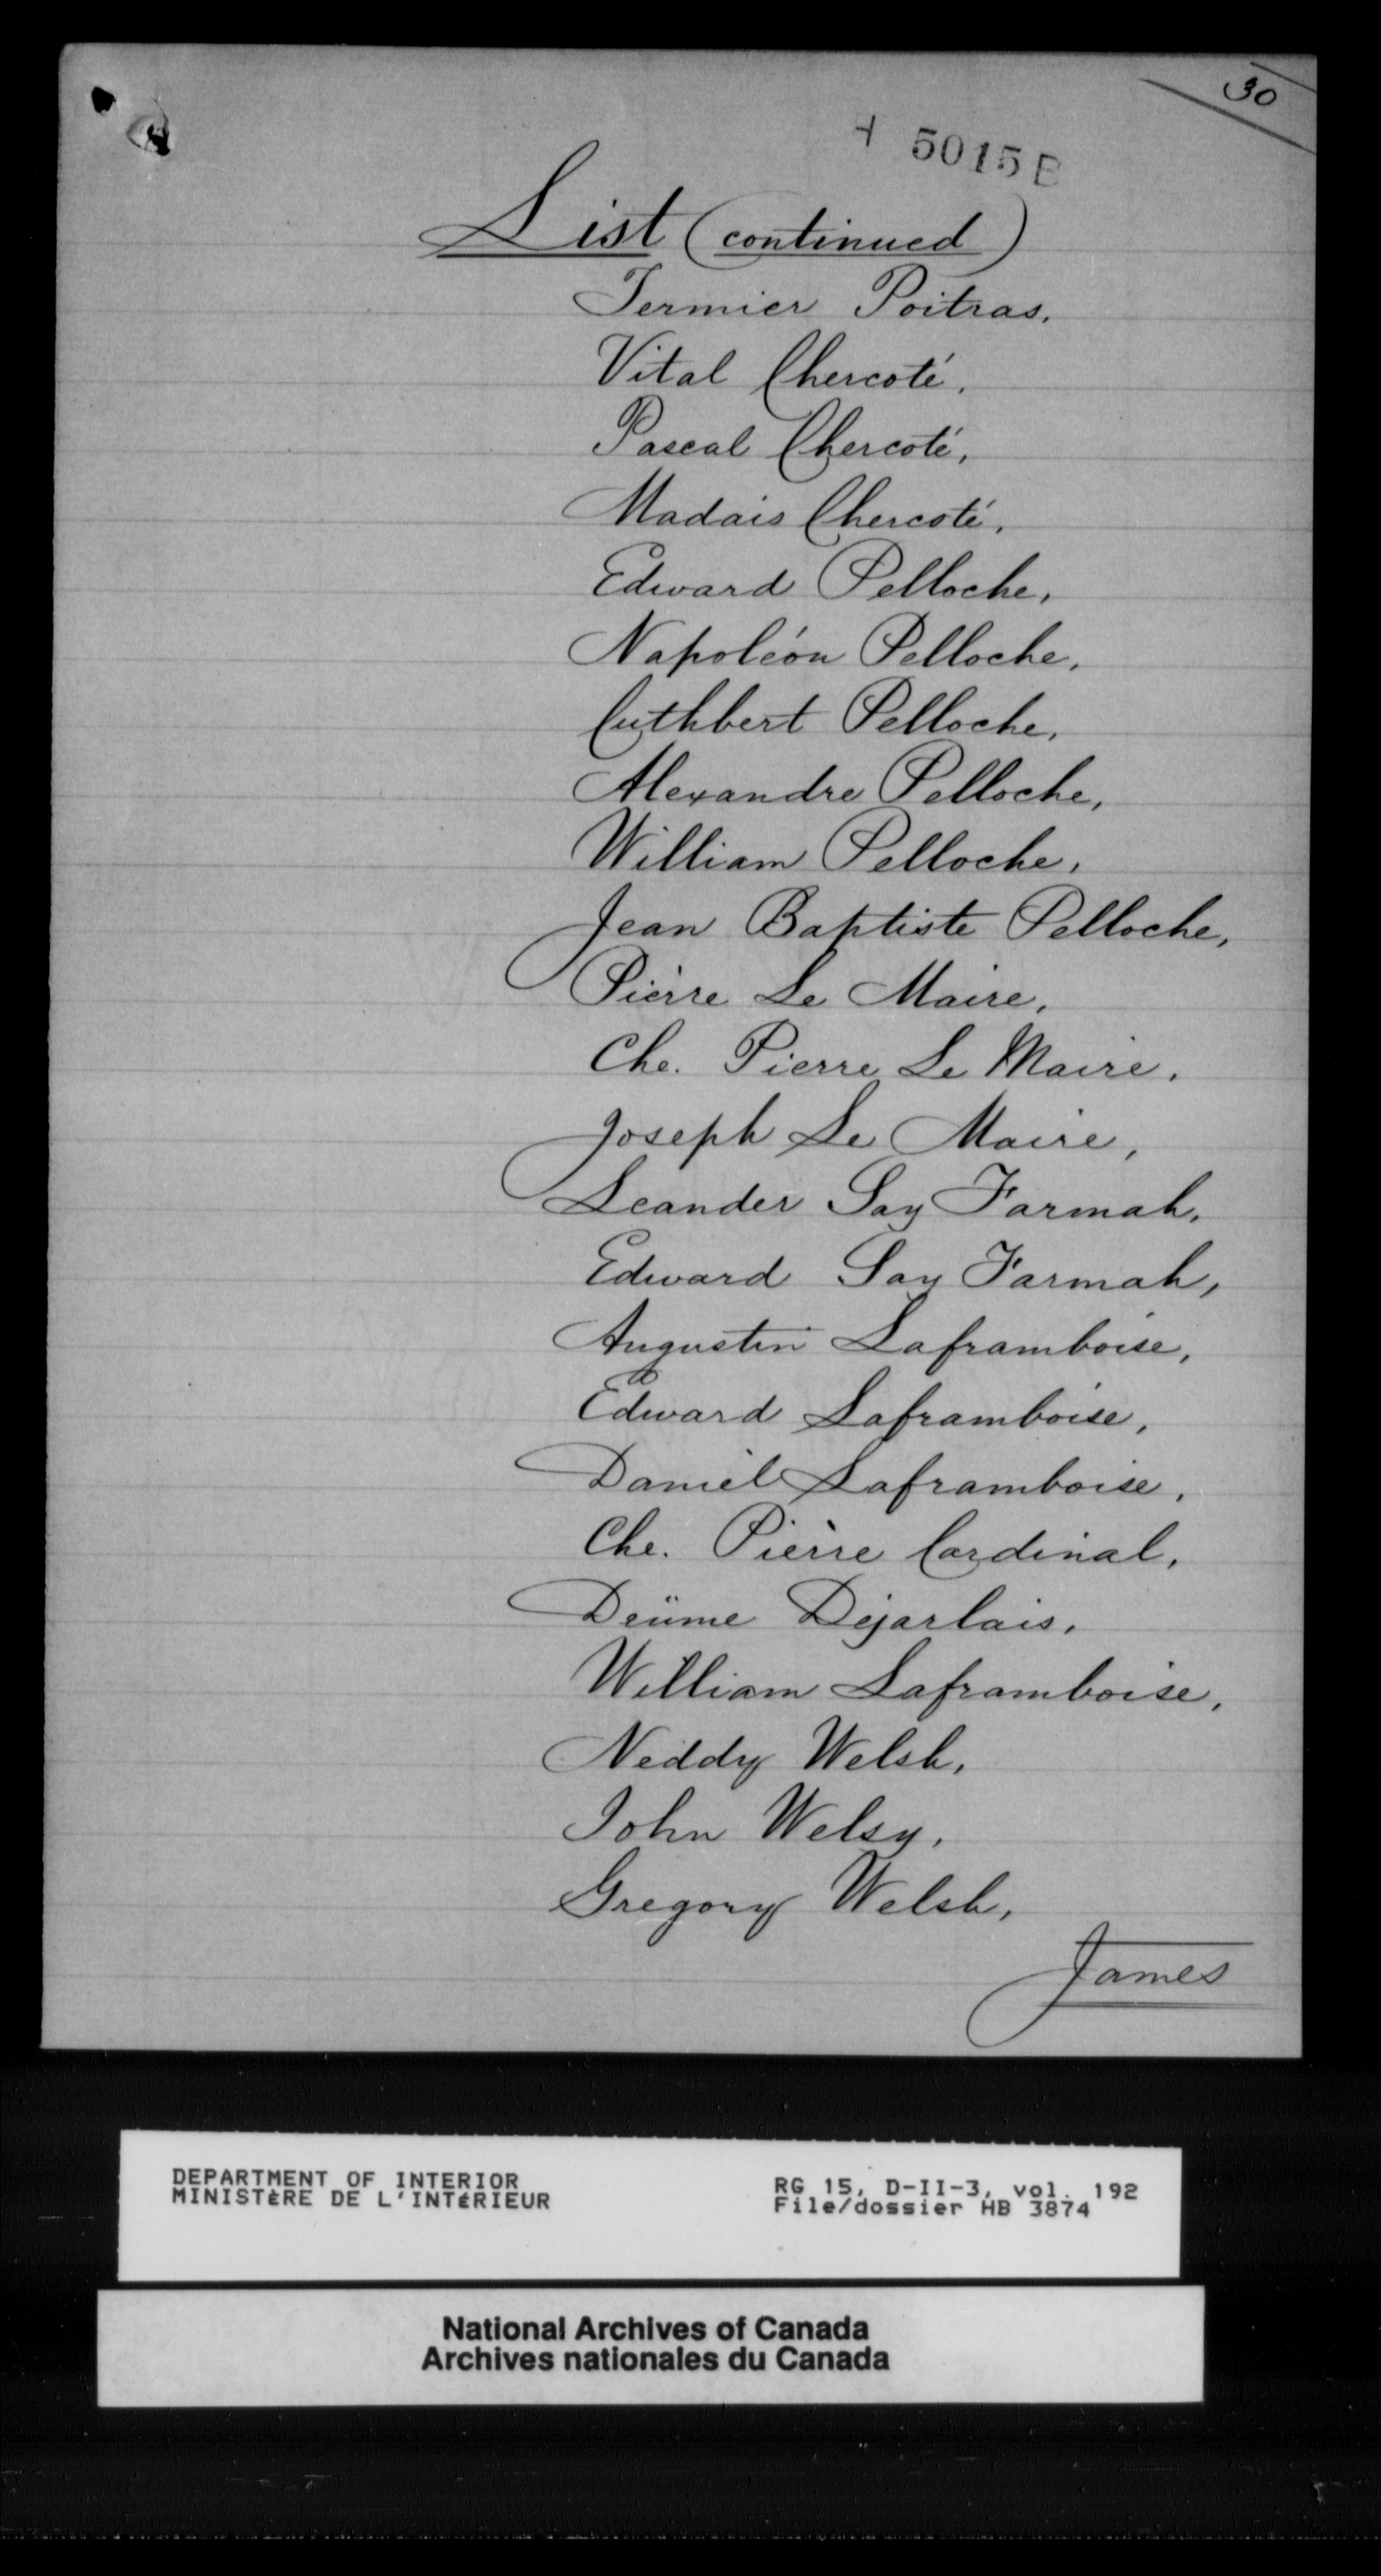 30
5015 B
List (continued)
Termier Poitras.
Vital Chercoté,
Pascal Chercoté,
Madais Chercoté,
Edward Pelloche,
Napoléon Pelloche,
Cuthbert Pelloche,
Alexandre Pelloche,
William Pelloche,
Jean Baptiste Pelloche,
Pierre Le Maire,
Che. Pierre Le Maire.
Joseph Le Maire,
Leander Say Farmah,
Edward Say Farmah,
Augustin Laframboise,
Edward Laframboise,
Daniel Laframboise,
Che. Pierre Cardinal,
Deüme Dejarlais.
William Laframboise,
Neddy Welsh,
John Welsy,
Gregory Welsh,
James
DEPARTMENT OF INTERIOR
MINISTÈRE DE L'INTÉRIEUR
RG 15, D-II-3, vol. 192
File/dossier HB 3874
National Archives of Canada
Archives nationales du Canada